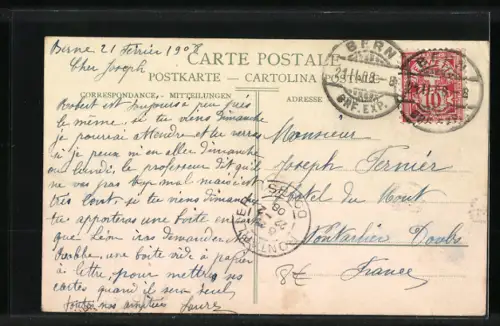 Berne 21 Février 1908
Cher Joseph
CARTE POSTALE
POSTKARTE - CARTOLINA POSTALE
CORRESPONDANCE - MITTEILUNGEN
ADRESSE
Robert est toujours à peu près
le même, si tu viens dimanche
je pourrai attendre et tu verras
si je peux m'en aller dimanche
ou lundi, le professeur dit qu'il
ne va pas trop mal mais c'est
très long si tu viens dimanche
tu apporteras une boite en
que Léon iras demander
une boite vide à papier
à lettre, pour mettre ses
cartes quand il sera seul
toutes nos amitiés
Monsieur
Joseph Fernier
Hôtel du Mont
Pontarlier Doubs
France
8€
BERN
21.II.08
BRF. EXP.
BERN
21.II.08
10
PONTARLIER